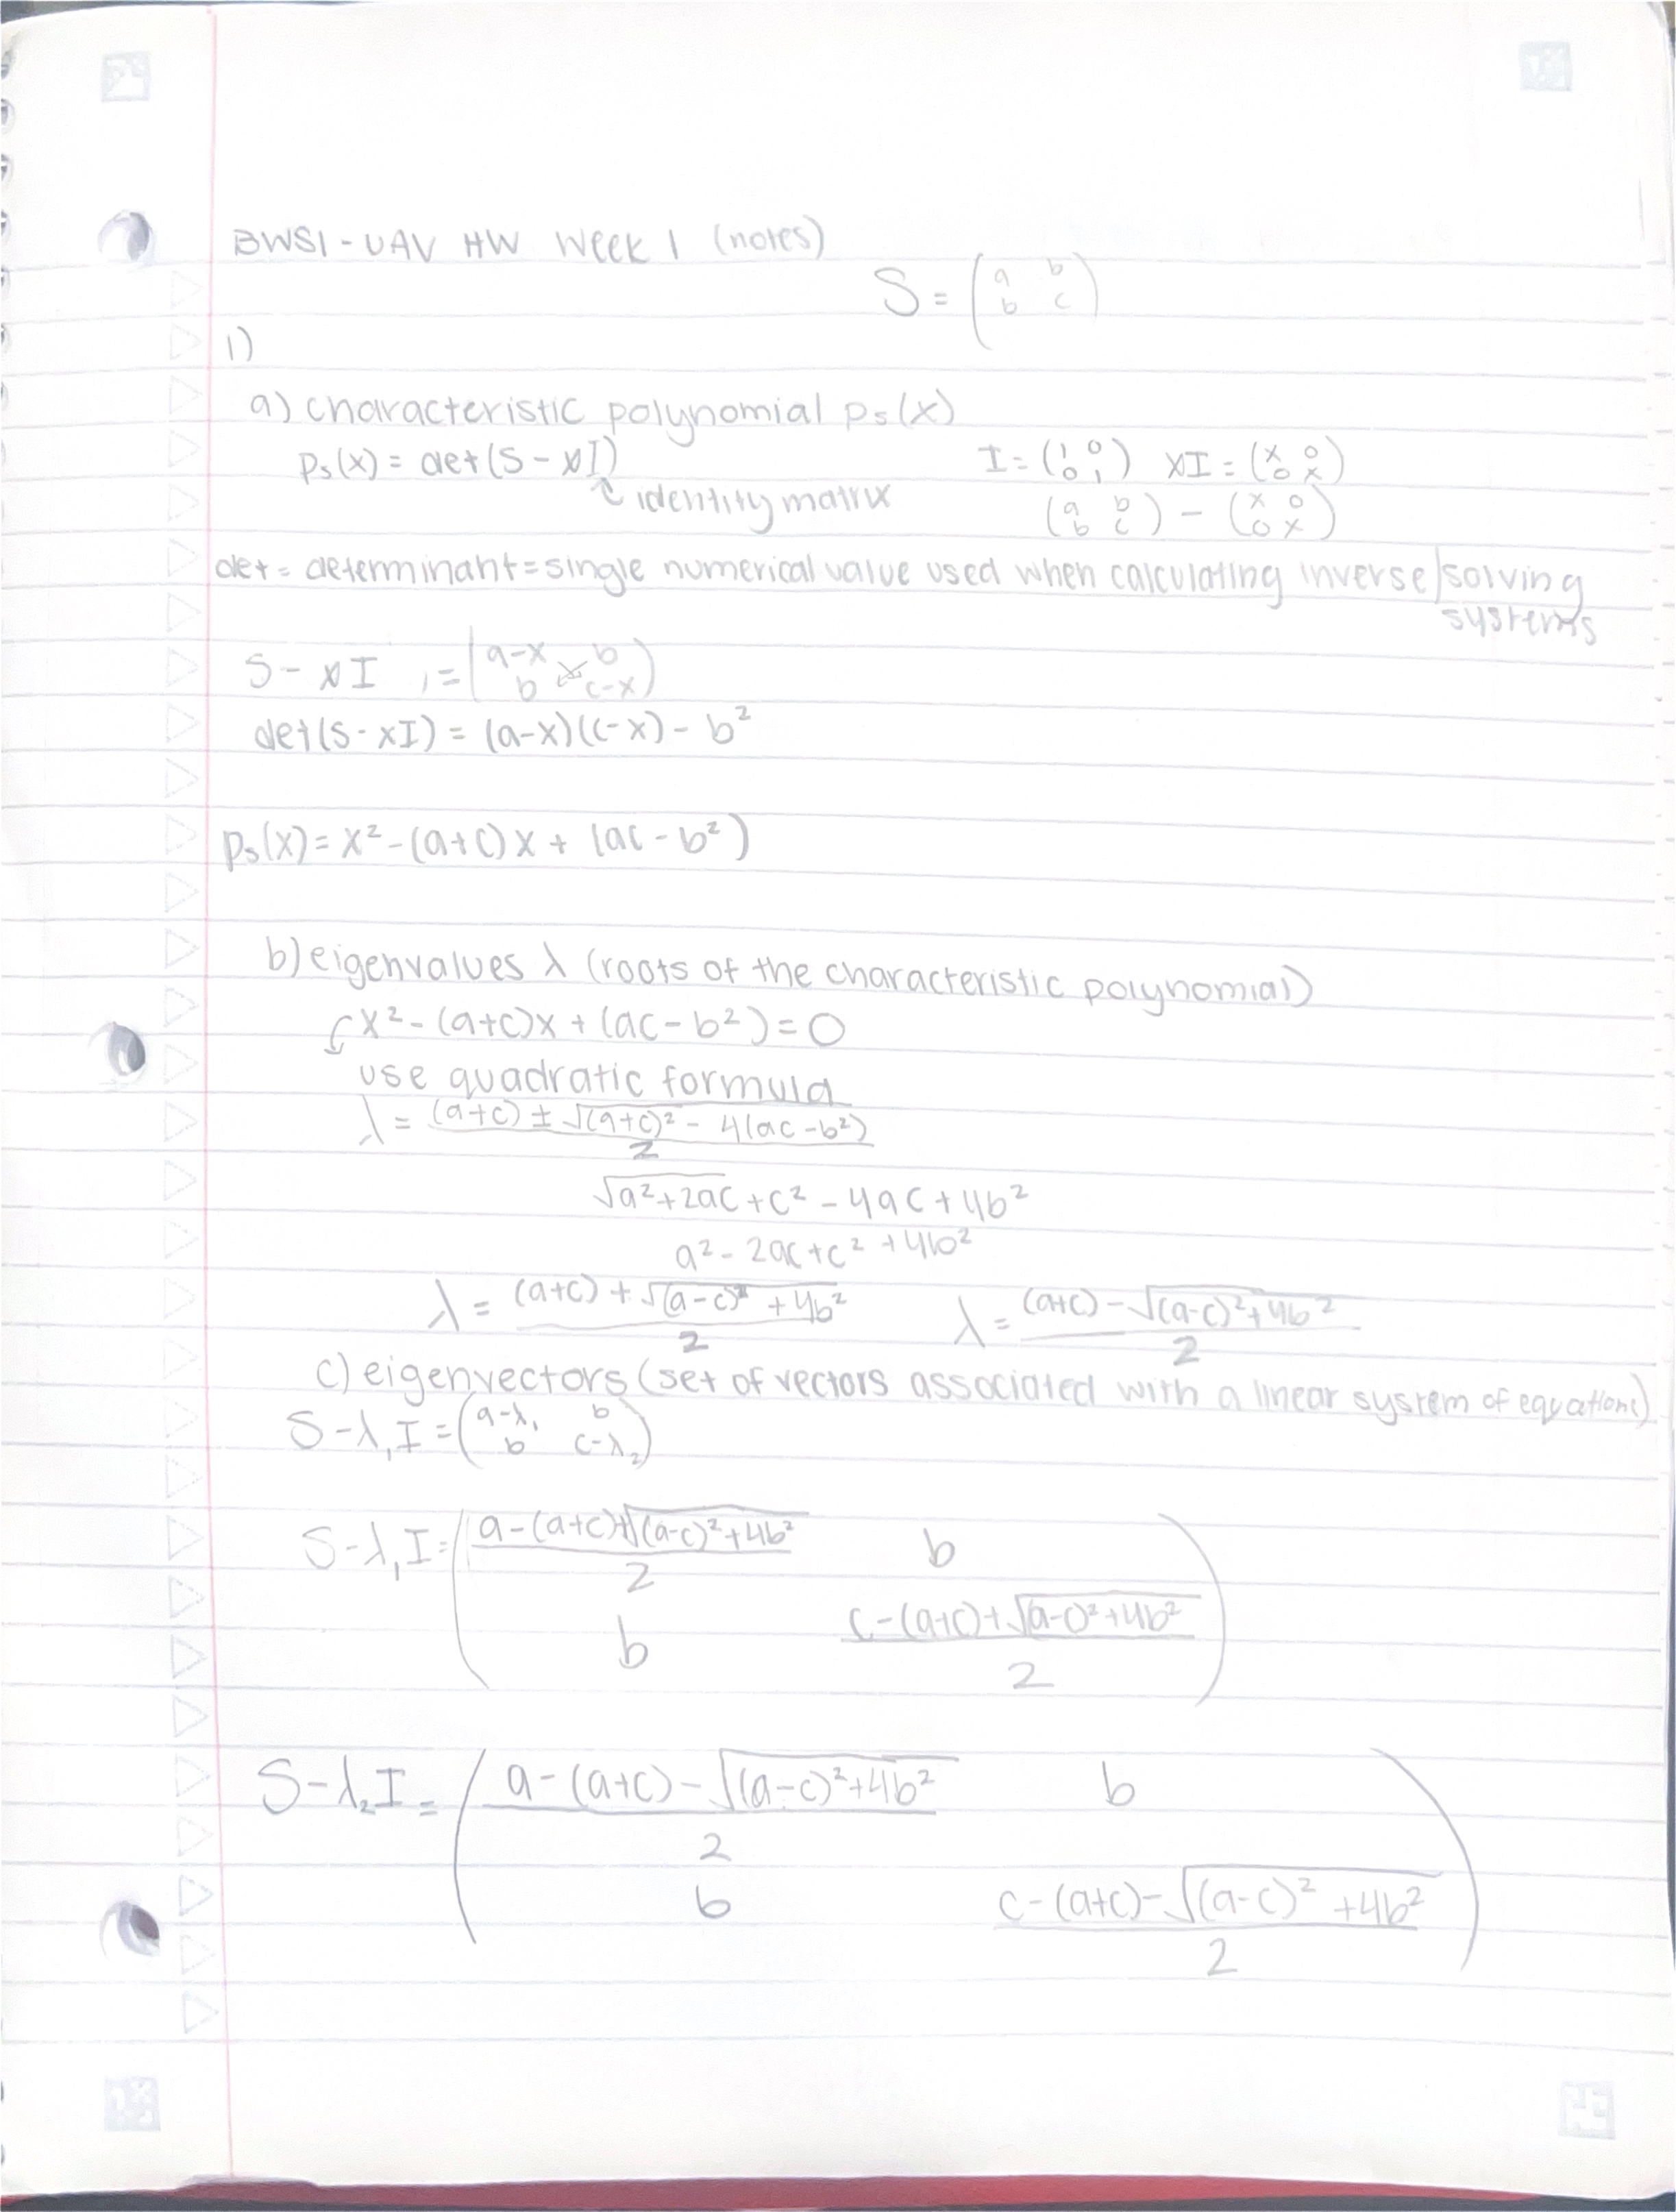 BWSI - UAV HW Week 1 (notes)
S = (a b
b c)
1)
a) characteristic polynomial ps(x)
ps(x) = det(S - xI) I = (1 0 0 1) xI = (x 0 0 x)
↑ identity matrix (a b b c) - (x 0 0 x)
det = determinant = single numerical value used when calculating inverse/solving
systems
S - xI = (a-x b
b c-x)
det(S - xI) = (a-x)(c-x) - b²
ps(x) = x² - (a+c)x + (ac - b²)
b) eigenvalues λ (roots of the characteristic polynomial)
x² - (a+c)x + (ac - b²) = 0
use quadratic formula
λ = (a+c) ± √(a+c)² - 4(ac - b²)
2
√a² + 2ac + c² - 4ac + 4b²
a² - 2ac + c² + 4b²
λ = (a+c) + √(a-c)² + 4b² λ = (a+c) - √(a-c)² + 4b²
2 2
c) eigenvectors (set of vectors associated with a linear system of equations)
S - λ₁I = (a-λ₁ b
b c-λ₂)
S - λ₁I = (a - (a+c) + √(a-c)² + 4b² b
2
c - (a+c) + √(a-c)² + 4b²
b 2)
S - λ₂I = (a - (a+c) - √(a-c)² + 4b² b
2
b c - (a+c) - √(a-c)² + 4b²
2)